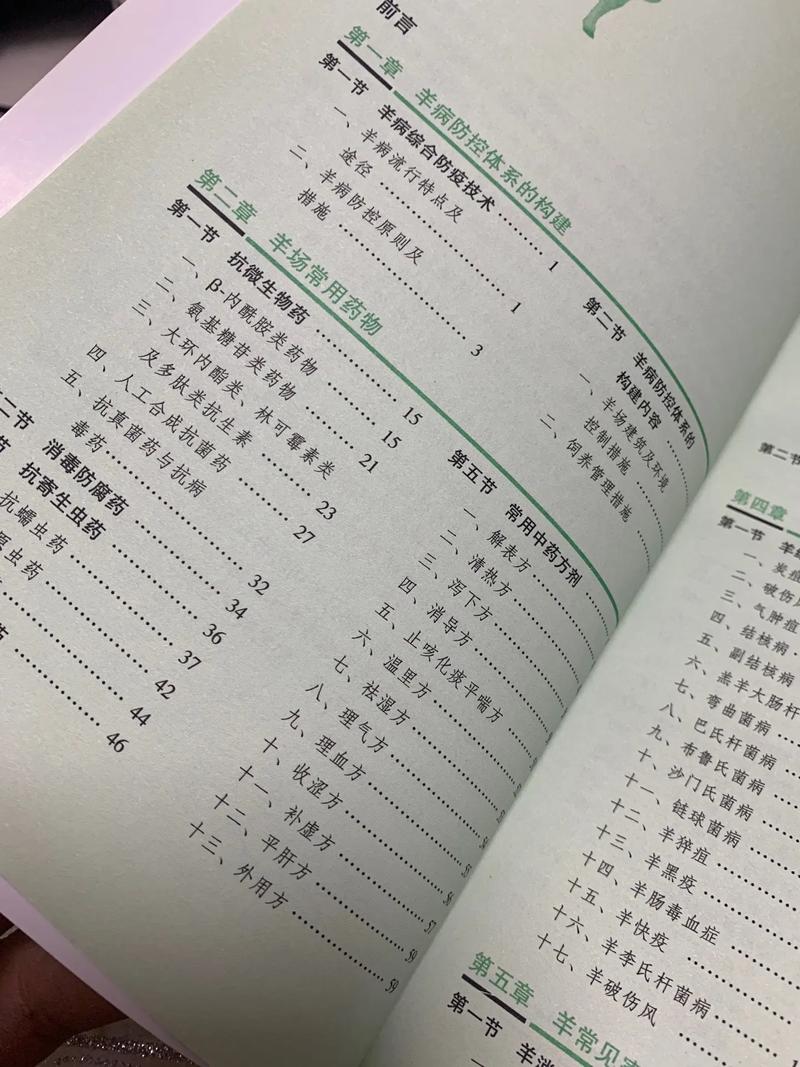 前言
第一章 羊病防控体系的构建
第一节 羊病综合防疫技术 1
一、羊病流行特点及
途径 1
二、羊病防控原则及
措施 3
第二节 羊病防控体系的
构建内容
一、羊场建筑及环境
控制措施
二、饲养管理措施
第二章 羊场常用药物
第一节 抗微生物药 15
一、β-内酰胺类药物 15
二、氨基糖苷类药物 21
三、大环内酯类、林可霉素类
及多肽类抗生素 23
四、人工合成抗菌药 27
五、抗真菌药与抗病
毒药 32
二节 消毒防腐药 34
节 抗寄生虫药 36
抗蠕虫药 37
原虫药 42
44
46
第五节 常用中药方剂
一、解表方
二、清热方
三、泻下方
四、消导方
五、止咳化痰平喘方
六、温里方
七、祛湿方
八、理气方
九、理血方
十、收涩方
十一、补虚方 57
十二、平肝方 59
十三、外用方 59
第二节
第四章
第一节 羊
一、炭疽
二、破伤风
三、气肿疽
四、结核病
五、副结核病
六、羔羊大肠杆
七、弯曲菌病
八、巴氏杆菌病
九、布鲁氏菌病
十、沙门氏菌病
十一、链球菌病
十二、羊猝疽
十三、羊黑疫
十四、羊肠毒血症
十五、羊快疫
十六、羊李氏杆菌病
十七、羊破伤风
第五章 羊常见
第一节 羊消